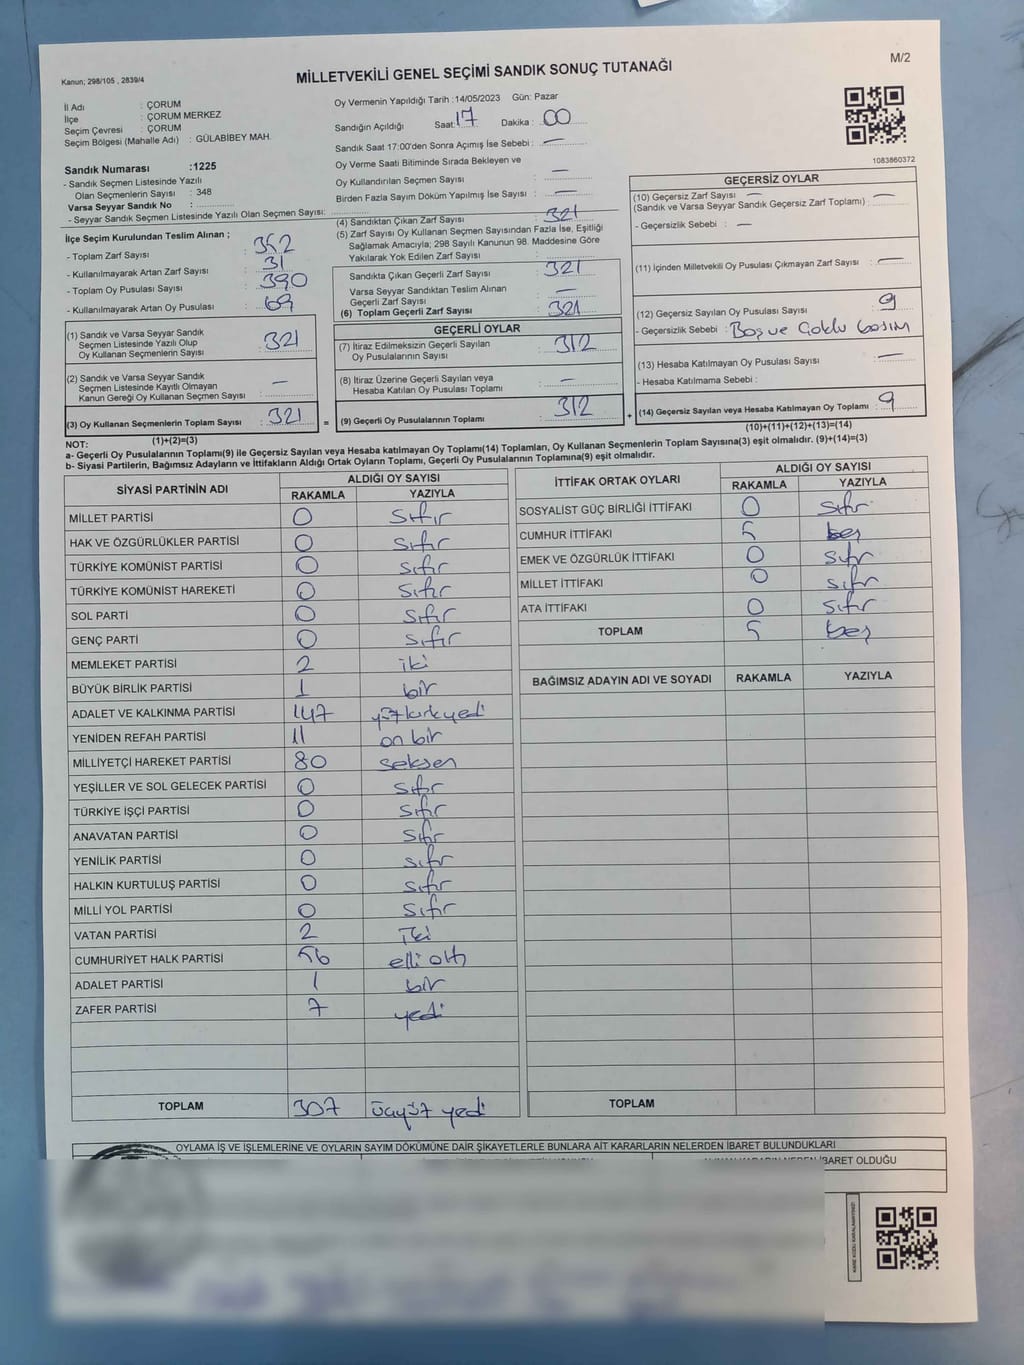 M/2
Kanun; 298/105 , 2839/4
MİLLETVEKİLİ GENEL SEÇİMİ SANDIK SONUÇ TUTANAĞI
İl Adı : ÇORUM
İlçe : ÇORUM MERKEZ
Seçim Çevresi : ÇORUM
Seçim Bölgesi (Mahalle Adı) : GÜLABİBEY MAH.
Sandık Numarası :1225
- Sandık Seçmen Listesinde Yazılı
Olan Seçmenlerin Sayısı : 348
Varsa Seyyar Sandık No :
- Seyyar Sandık Seçmen Listesinde Yazılı Olan Seçmen Sayısı:
Oy Vermenin Yapıldığı Tarih :14/05/2023 Gün: Pazar
Sandığın Açıldığı Saat: 17 Dakika : 00
Sandık Saat 17:00'den Sonra Açımış İse Sebebi : —
Oy Verme Saati Bitiminde Sırada Bekleyen ve
Oy Kullandırılan Seçmen Sayısı : —
Birden Fazla Sayım Döküm Yapılmış İse Sayısı : —
1083860372
İlçe Seçim Kurulundan Teslim Alınan ;
- Toplam Zarf Sayısı : 352
- Kullanılmayarak Artan Zarf Sayısı : 31
- Toplam Oy Pusulası Sayısı : 390
- Kullanılmayarak Artan Oy Pusulası : 69
(1) Sandık ve Varsa Seyyar Sandık
Seçmen Listesinde Yazılı Olup
Oy Kullanan Seçmenlerin Sayısı : 321
(2) Sandık ve Varsa Seyyar Sandık
Seçmen Listesinde Kayıtlı Olmayan
Kanun Gereği Oy Kullanan Seçmen Sayısı : —
(3) Oy Kullanan Seçmenlerin Toplam Sayısı : 321
(1)+(2)=(3)
(4) Sandıktan Çıkan Zarf Sayısı : 321
(5) Zarf Sayısı Oy Kullanan Seçmen Sayısından Fazla İse, Eşitliği
Sağlamak Amacıyla; 298 Sayılı Kanunun 98. Maddesine Göre
Yakılarak Yok Edilen Zarf Sayısı :
Sandıkta Çıkan Geçerli Zarf Sayısı : 321
Varsa Seyyar Sandıktan Teslim Alınan
Geçerli Zarf Sayısı : —
(6) Toplam Geçerli Zarf Sayısı : 321
GEÇERLİ OYLAR
(7) İtiraz Edilmeksizin Geçerli Sayılan
Oy Pusulalarının Sayısı : 312
(8) İtiraz Üzerine Geçerli Sayılan veya
Hesaba Katılan Oy Pusulası Toplamı : —
= (9) Geçerli Oy Pusulalarının Toplamı : 312 +
GEÇERSİZ OYLAR
(10) Geçersiz Zarf Sayısı —
(Sandık ve Varsa Seyyar Sandık Geçersiz Zarf Toplamı) : —
- Geçersizlik Sebebi : —
(11) İçinden Milletvekili Oy Pusulası Çıkmayan Zarf Sayısı : —
(12) Geçersiz Sayılan Oy Pusulası Sayısı : 9
- Geçersizlik Sebebi : Boş ve Çoklu basım
(13) Hesaba Katılmayan Oy Pusulası Sayısı : —
- Hesaba Katılmama Sebebi :
(14) Geçersiz Sayılan veya Hesaba Katılmayan Oy Toplamı : 9
(10)+(11)+(12)+(13)=(14)
NOT:
a- Geçerli Oy Pusulalarının Toplamı(9) ile Geçersiz Sayılan veya Hesaba katılmayan Oy Toplamı(14) Toplamları, Oy Kullanan Seçmenlerin Toplam Sayısına(3) eşit olmalıdır. (9)+(14)=(3)
b- Siyasi Partilerin, Bağımsız Adayların ve İttifakların Aldığı Ortak Oyların Toplamı, Geçerli Oy Pusulalarının Toplamına(9) eşit olmalıdır.
SİYASİ PARTİNİN ADI ALDIĞI OY SAYISI
RAKAMLA YAZIYLA
MİLLET PARTİSİ 0 sıfır
HAK VE ÖZGÜRLÜKLER PARTİSİ 0 sıfır
TÜRKİYE KOMÜNİST PARTİSİ 0 sıfır
TÜRKİYE KOMÜNİST HAREKETİ 0 sıfır
SOL PARTİ 0 sıfır
GENÇ PARTİ 0 sıfır
MEMLEKET PARTİSİ 2 iki
BÜYÜK BİRLİK PARTİSİ 1 bir
ADALET VE KALKINMA PARTİSİ 147 yüzkırkyedi
YENİDEN REFAH PARTİSİ 11 on bir
MİLLİYETÇİ HAREKET PARTİSİ 80 seksen
YEŞİLLER VE SOL GELECEK PARTİSİ 0 sıfır
TÜRKİYE İŞÇİ PARTİSİ 0 sıfır
ANAVATAN PARTİSİ 0 sıfır
YENİLİK PARTİSİ 0 sıfır
HALKIN KURTULUŞ PARTİSİ 0 sıfır
MİLLİ YOL PARTİSİ 0 sıfır
VATAN PARTİSİ 2 İki
CUMHURİYET HALK PARTİSİ 56 elli altı
ADALET PARTİSİ 1 bir
ZAFER PARTİSİ 7 yedi
TOPLAM 307 üçyüz yedi
İTTİFAK ORTAK OYLARI ALDIĞI OY SAYISI
RAKAMLA YAZIYLA
SOSYALİST GÜÇ BİRLİĞİ İTTİFAKI 0 sıfır
CUMHUR İTTİFAKI 5 beş
EMEK VE ÖZGÜRLÜK İTTİFAKI 0 sıfır
MİLLET İTTİFAKI 0 sıfır
ATA İTTİFAKI 0 sıfır
TOPLAM 5 beş
BAĞIMSIZ ADAYIN ADI VE SOYADI RAKAMLA YAZIYLA
TOPLAM
OYLAMA İŞ VE İŞLEMLERİNE VE OYLARIN SAYIM DÖKÜMÜNE DAİR ŞİKAYETLERLE BUNLARA AİT KARARLARIN NELERDEN İBARET BULUNDUKLARI
İBARET OLDUĞU